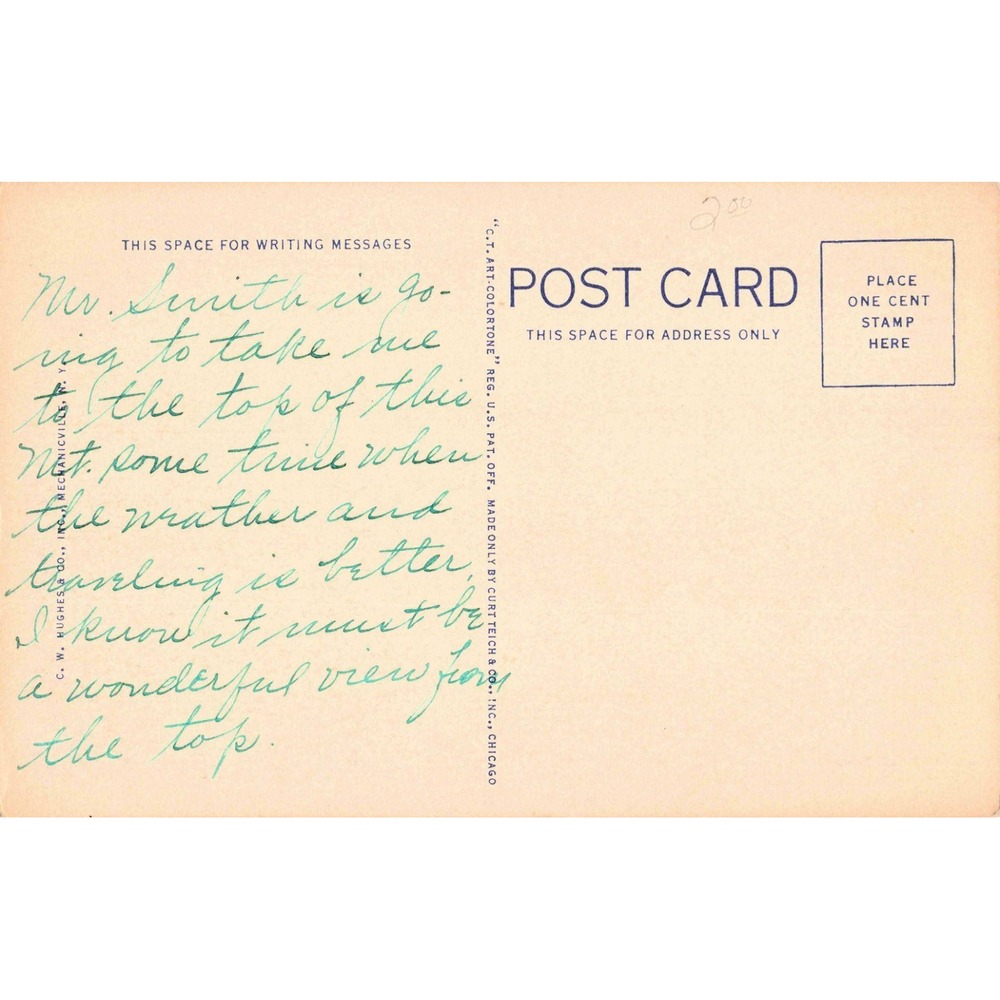 2 00
THIS SPACE FOR WRITING MESSAGES
Mr. Smith is go-
ing to take me
to the top of this
Mt. some time when
the weather and
traveling is better,
I know it must be
a wonderful view from
the top.
C. W. HUGHES & CO., INC., MECHANICVILLE, N. Y.
"C.T. ART-COLORTONE" REG. U.S. PAT. OFF. MADE ONLY BY CURT TEICH & CO., INC., CHICAGO
POST CARD
THIS SPACE FOR ADDRESS ONLY
PLACE
ONE CENT
STAMP
HERE